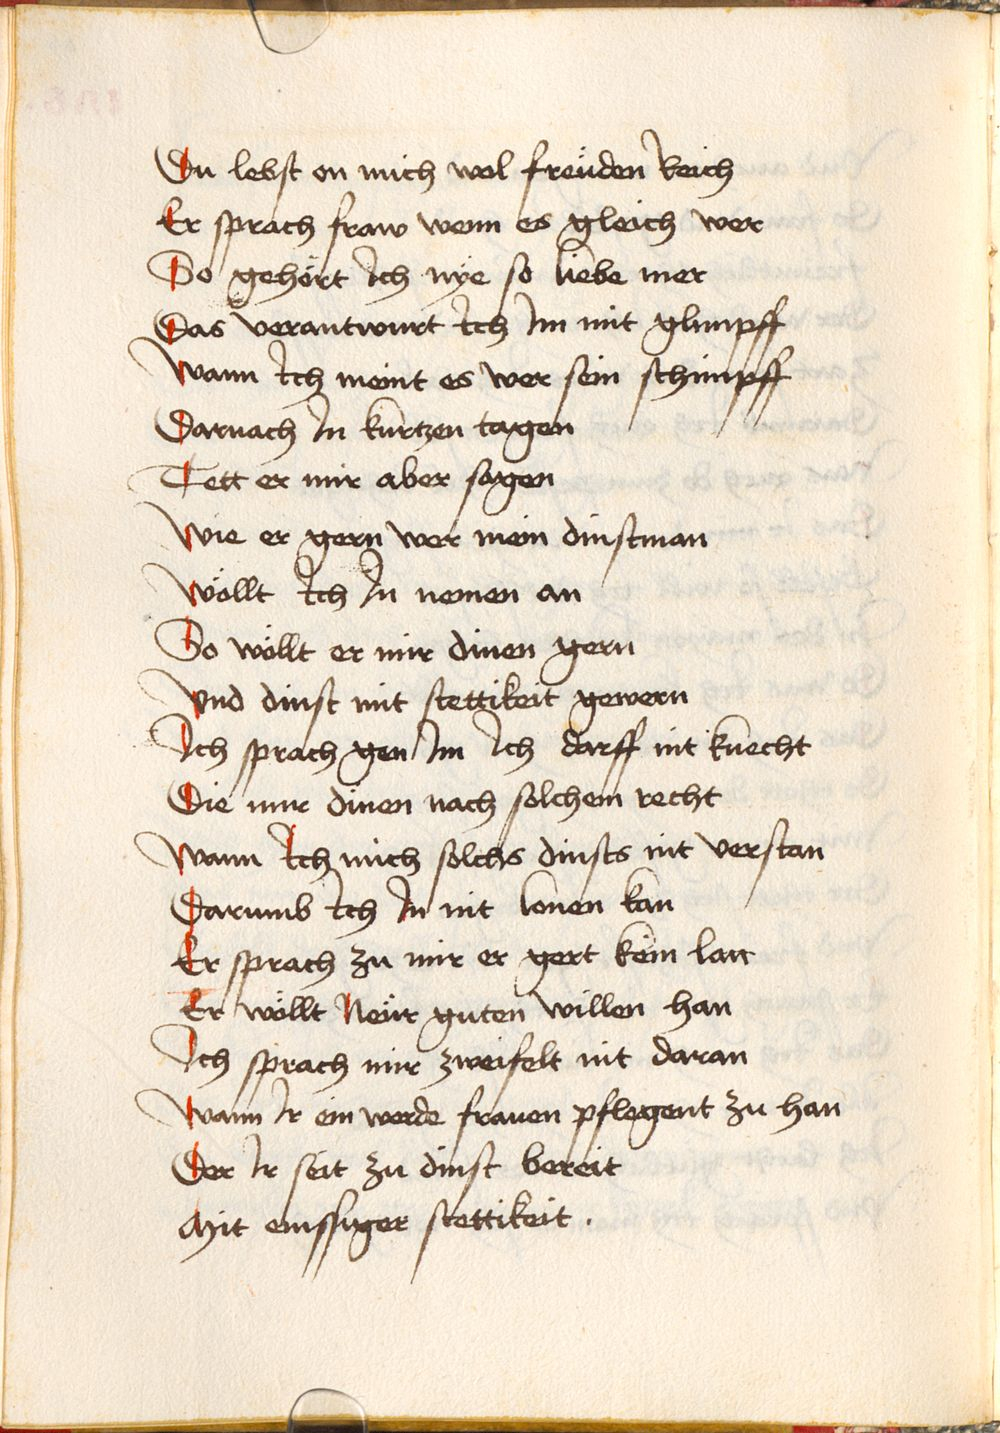 Du lebst on mich wol freüden Reich
Er sprach fraw wenn es gleich wer
So gehört Ich nÿe so liebe mer
Das verantwurt Ich Im mit glimpff
Wann Ich meint es wer sein schimpff
Darnach In kurtzen tagen
Tett er mir aber sagen
Wie er gern wer mein dinstman
Wöllt Ich In nemen an
So wöllt er mir dinen gern
Vnd dinst mit stettikeit gewern
Ich sprach gen Im Ich darff nit knecht
Die mir dinen nach solchem recht
Wann Ich mich solchs dinsts nit verstan
Darumb Ich In nit lonen kan
Er sprach zu mir er gert kein lan
Er wöllt Neür guten willen han
Ich sprach mir zweifelt nit daran
Wann Ir ein werde frauen pflegent zu han
Der Ir seit zu dinst bereit
Mit emssiger stettikeit .